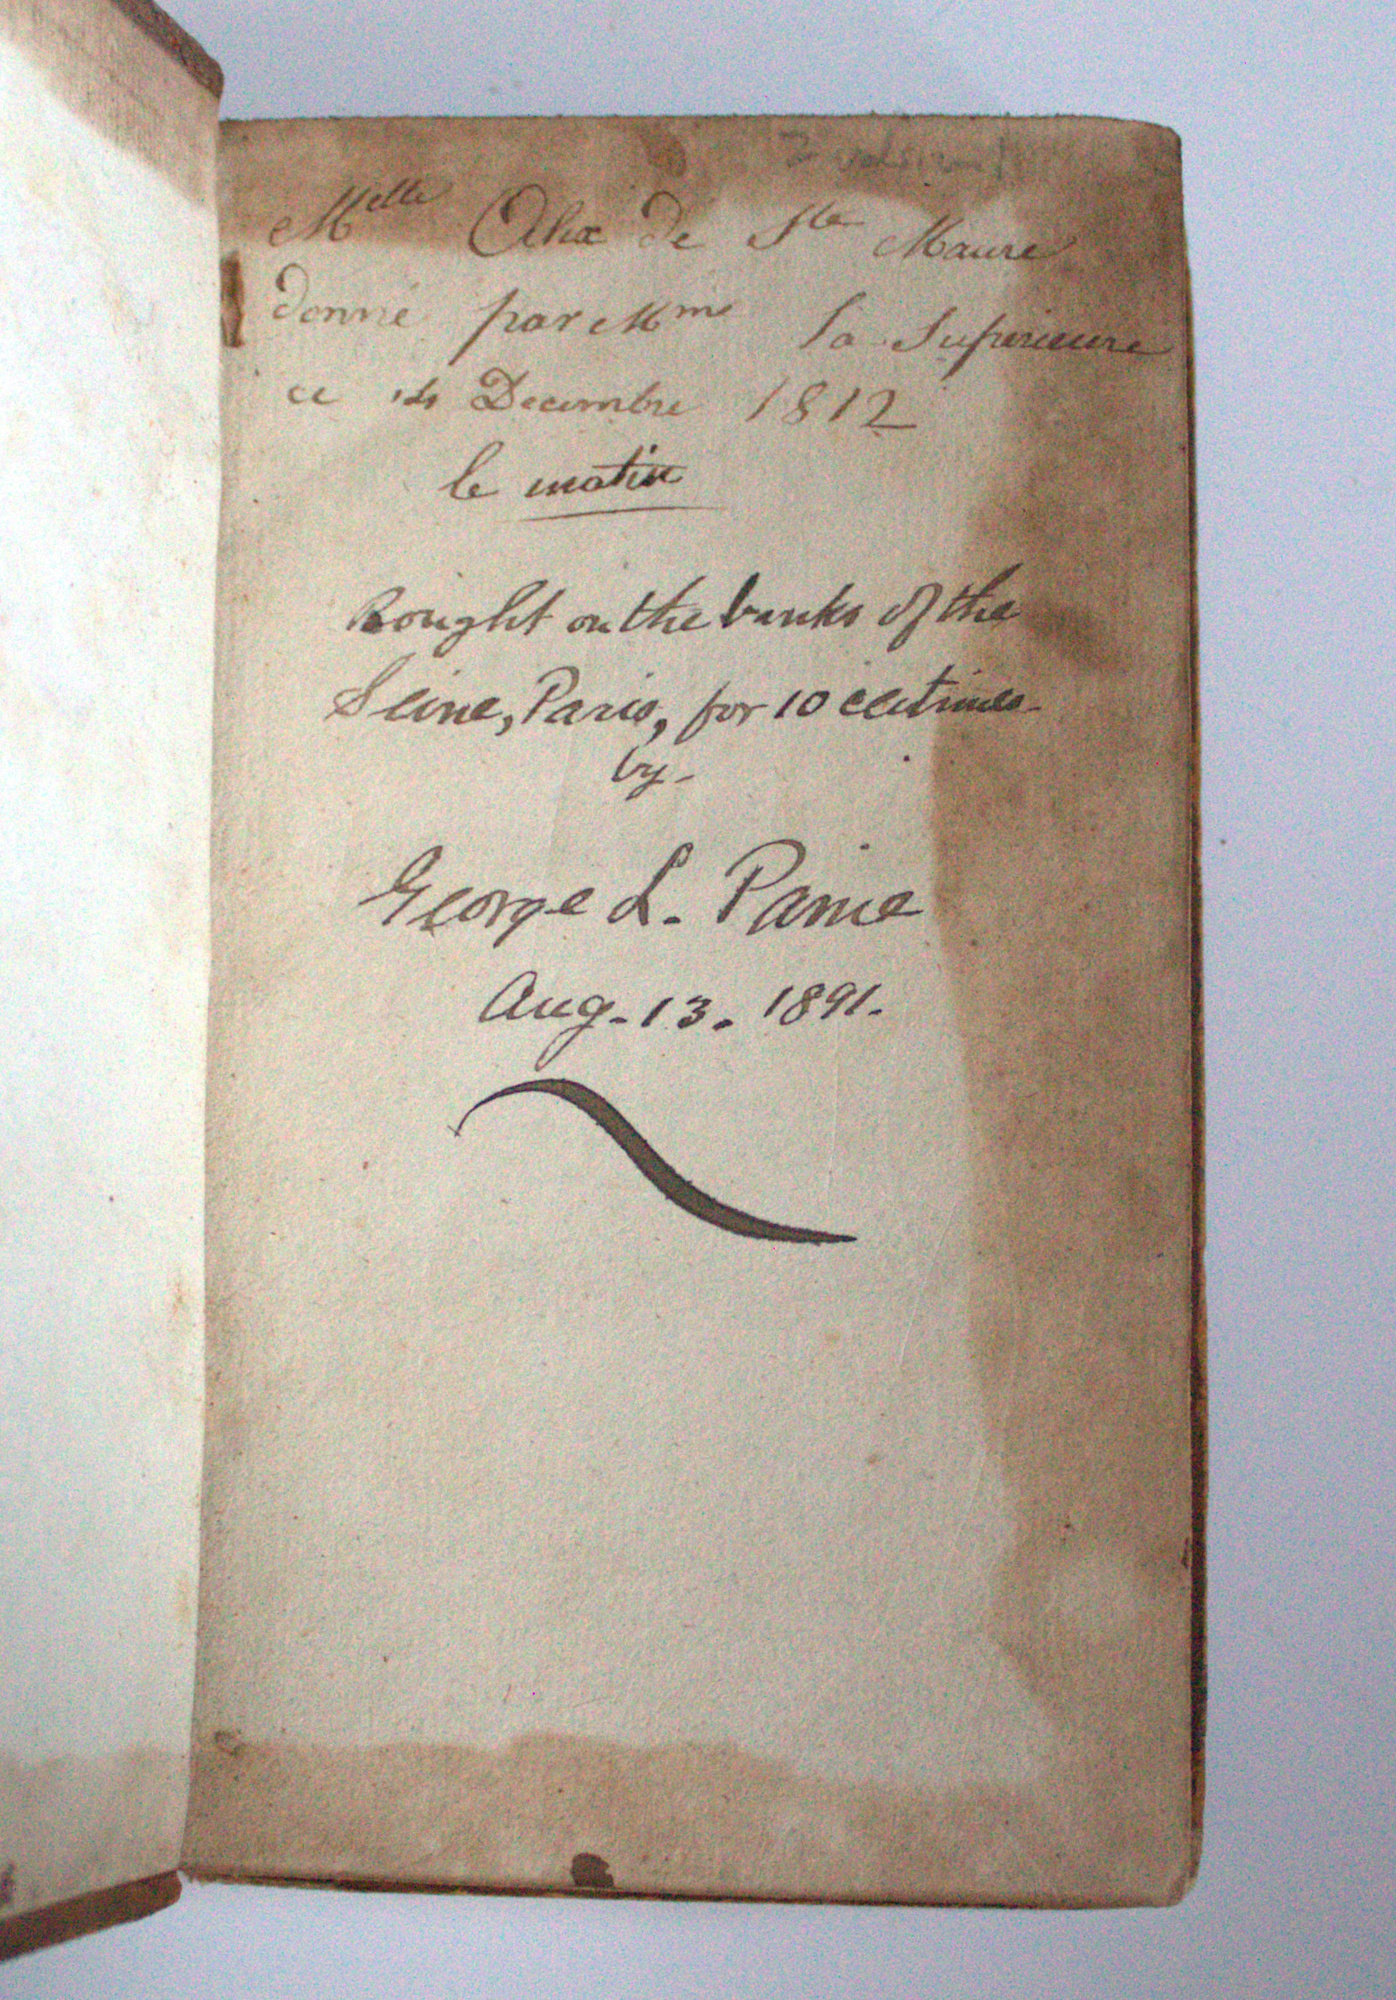 Melle Alix de Ste Maure
donné par Mme la Superieure
ce 14 Decembre 1812
le matin
Bought on the banks of the
Seine, Paris, for 10 centimes
by-
George L.
Aug. 13. 1891.